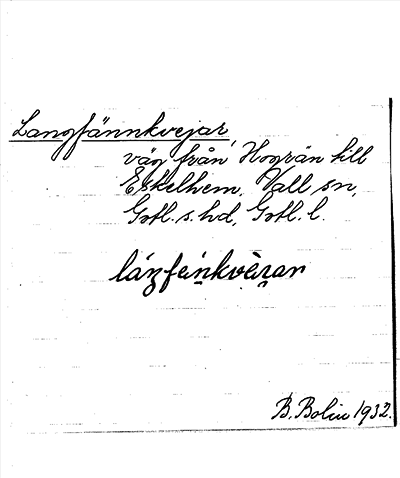 Langfännkvejar,
väg från Hogrän till
Eskelhem. Vall sn,
Gotl. s. hd, Gotl. l.
B. Bolin 1932.